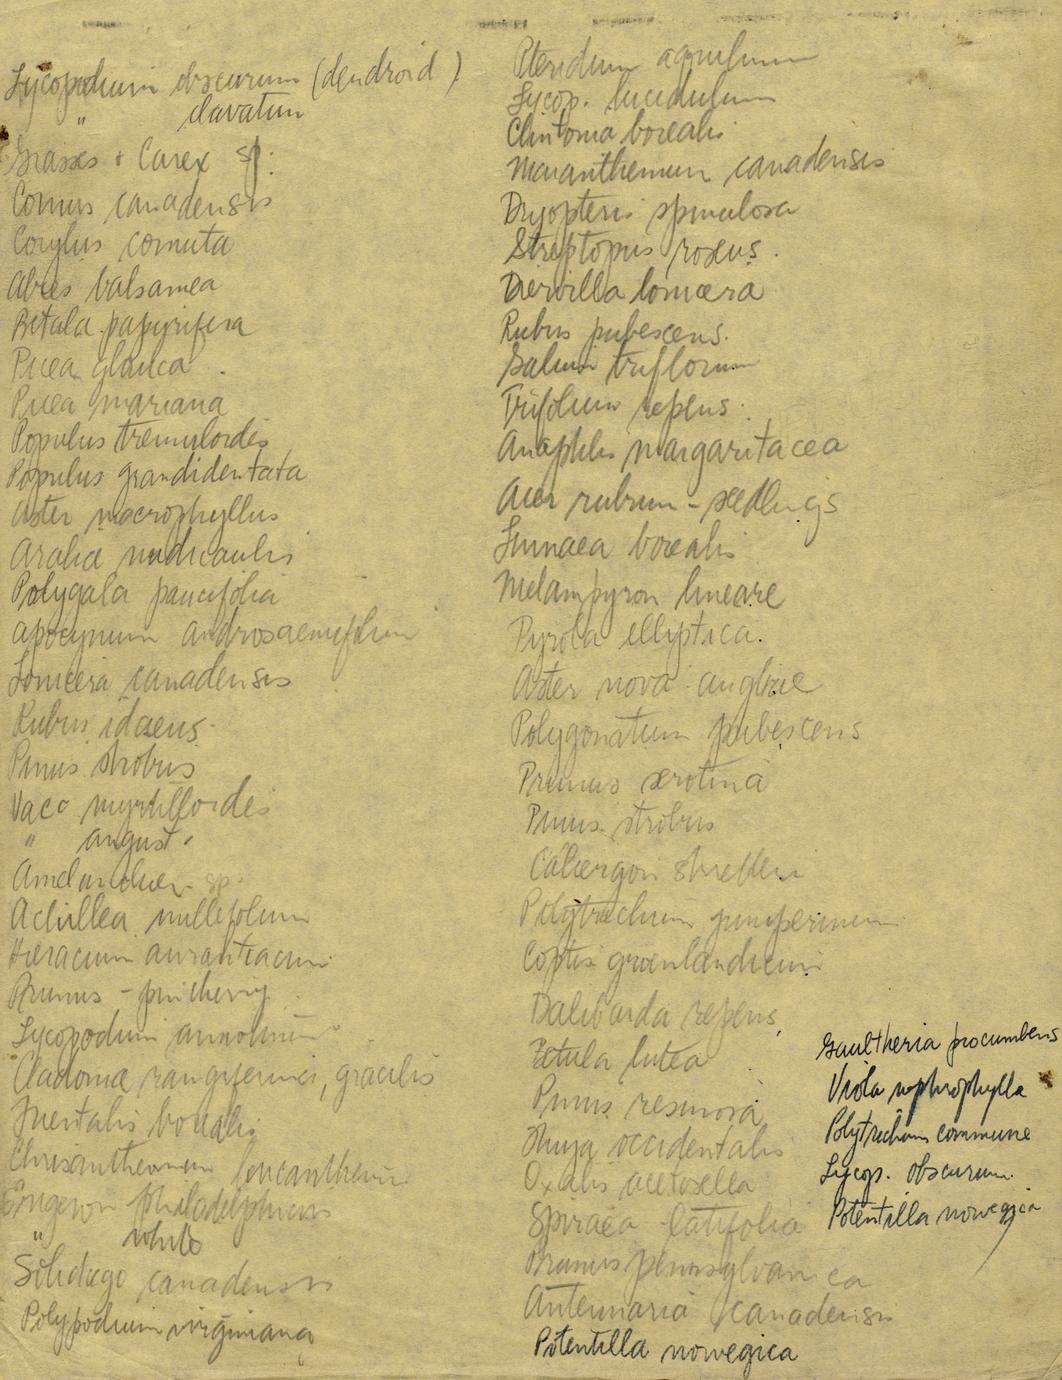 Lycopodium obscurum (dendroid)
" clavatum
Grasses + Carex sp.
Cornus canadensis
Corylus cornuta
Abies balsamea
Betula papyrifera
Picea glauca
Picea mariana
Populus tremuloides
Populus grandidentata
Aster macrophyllus
Aralia nudicaulis
Polygala paucifolia
Apocynum androsaemifolium
Lonicera canadensis
Rubus idaeus
Pinus strobus
Vacc myrtilloides
" angust.
Amelanchier sp.
Achillea millefolium
Hieracium aurantiacum
Prunus - pincherry
Lycopodium annotinum
Cladonia rangiferina, gracilis
Trientalis borealis
Chrisanthemum leucanthemum
Erigeron philadelphicus
" white
Solidago canadensis
Polypodium virginiana
Pteridium aquilinum
Lycop. lucidulum
Clintonia borealis
Maianthemum canadensis
Dryopteris spinulosa
Streptopus roseus.
Diervilla lonicera
Rubus pubescens.
Galium triflorum
Trifolium repens.
Anaphlis margaritacea
Acer rubrum - seedlings
Linnaea borealis
Melampyron lineare
Pyrola elliptica.
Aster nova-angliae
Polygonatum pubescens
Prunus serotina
Pinus strobus
Calliergon schreberi
Polytrichum juniperinum
Coptis groenlandicum
Dalibarda repens
Betula lutea
Pinus resinosa
Thuja occidentalis
Oxalis acetosella
Spiraea latifolia
Prunus pennsylvanica
Antennaria canadensis
Potentilla norvegica
Gaultheria procumbens
Viola nephrophylla
Polytrichum commune
Lycop. obscurum.
Potentilla norvegica